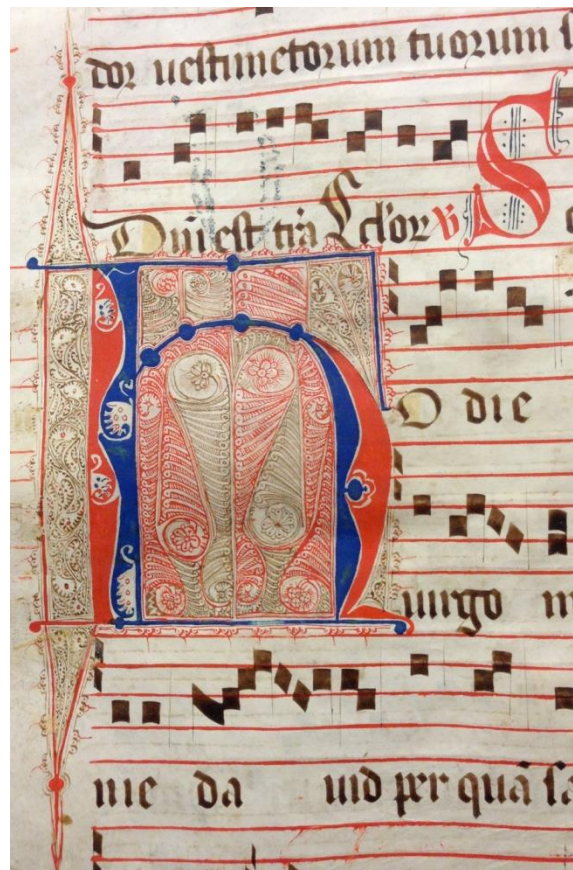 dor uestimetorum tuorum s
Dni est tra Celor V S
H o die
uirgo
nie da uid per quā sa